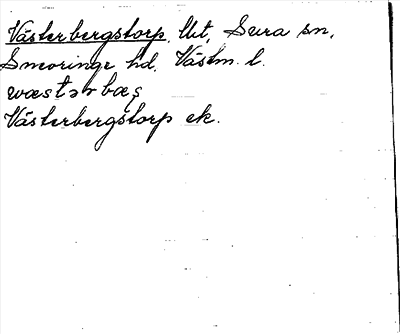 Västerbergstorp, Utj, Sura sn,
Smeringe hd, Västm. l.
wæstər bæş
Västerbergstorp ek.